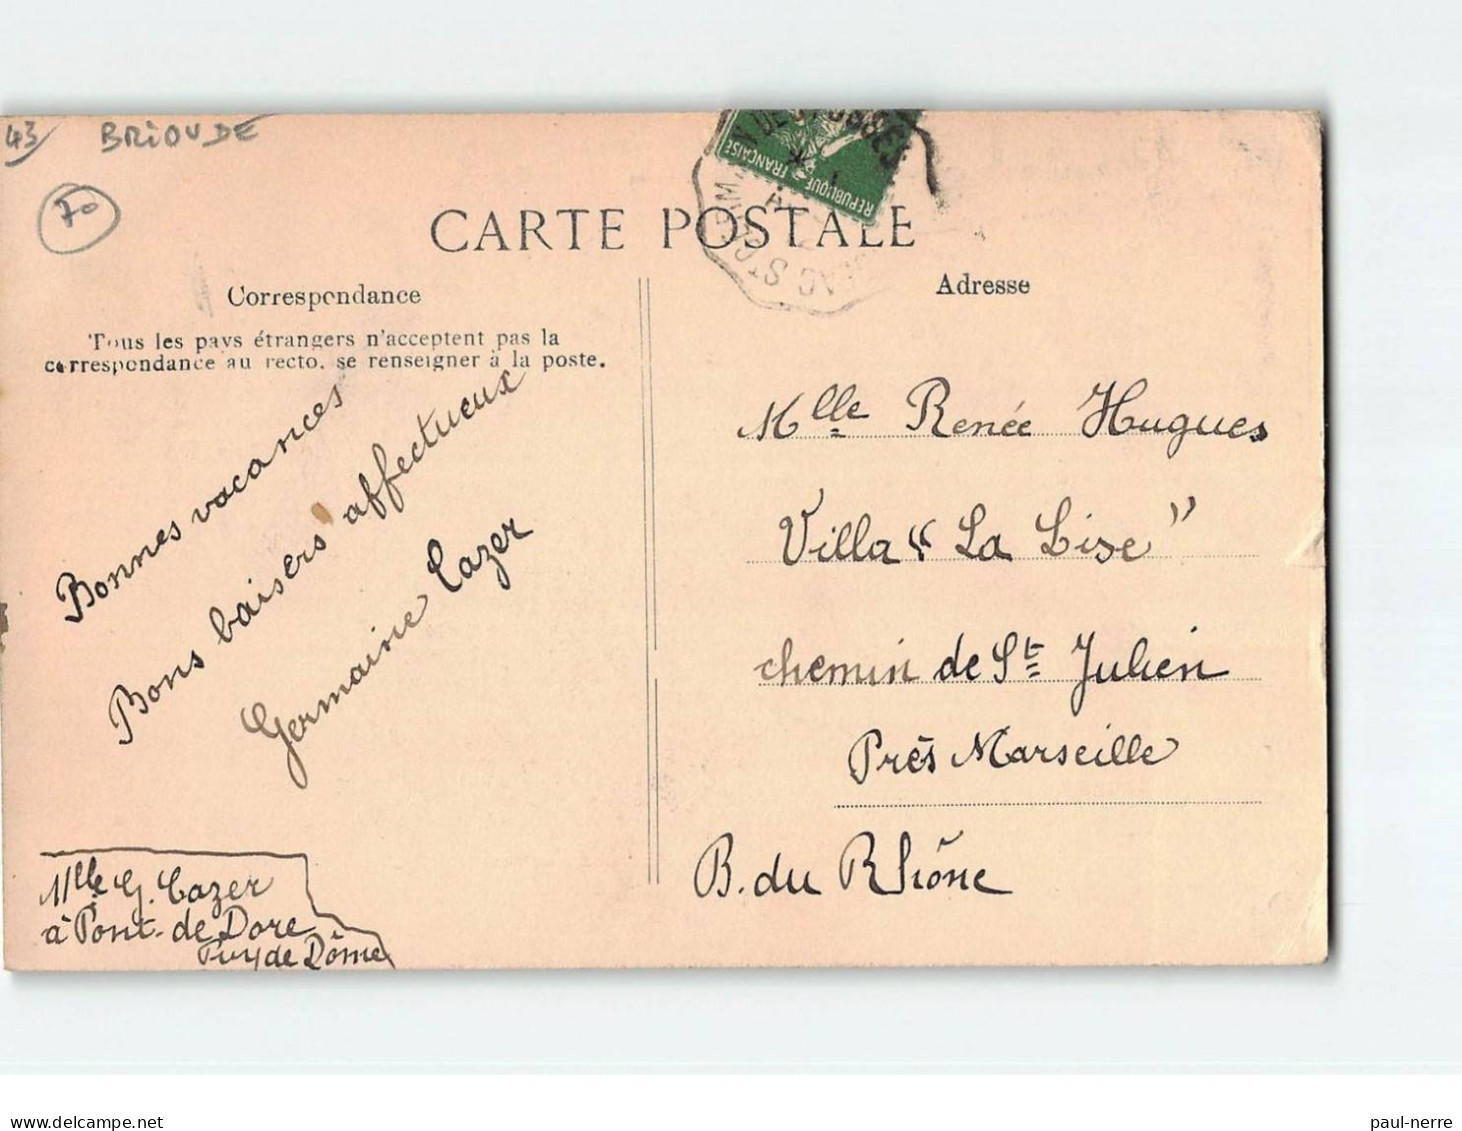 43 BRIOUDE
70
RÉPUBLIQUE FRANÇAISE
CARTE POSTALE
Correspondance
Tous les pays étrangers n'acceptent pas la
correspondance au recto, se renseigner à la poste.
Bonnes vacances
Bons baisers affectueux
Germaine Cazer
Mlle G. Cazer
à Pont-de Dore
Puy de Dôme
Adresse
Mlle Renée Hugues
Villa "La Lise"
chemin de St Julien
Près Marseille
B. du Rhône
paul-nerre